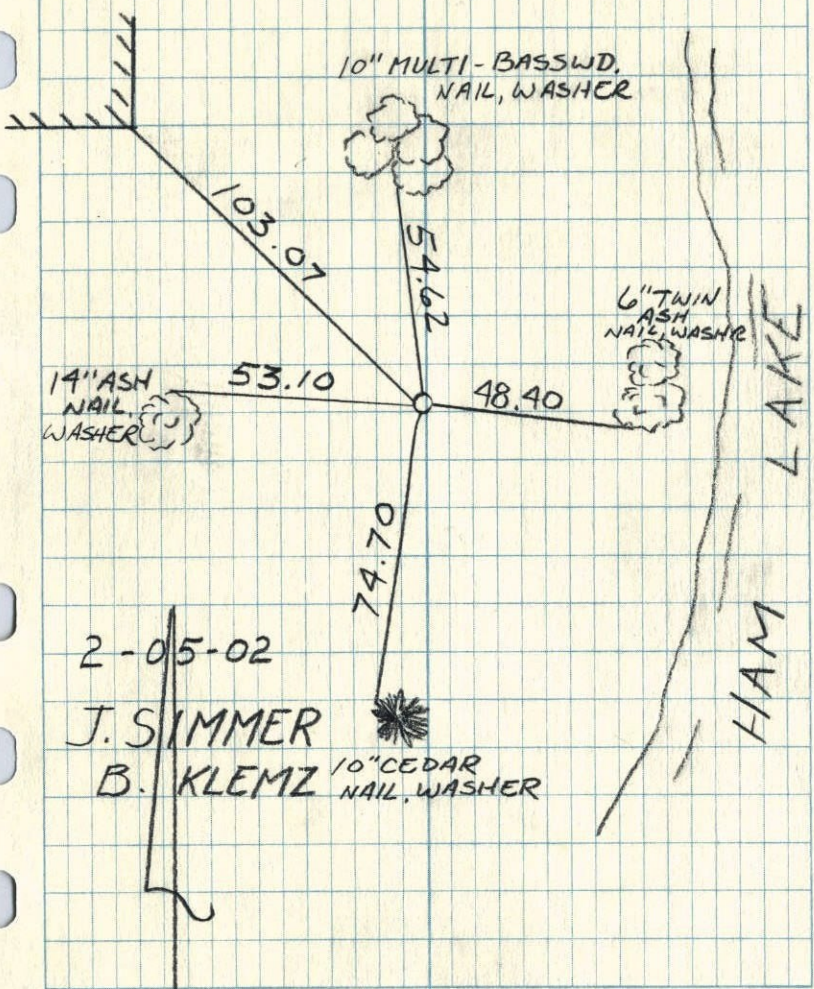 10" MULTI-BASSWD.
NAIL, WASHER
103.07
54.62
6" TWIN
ASH
NAIL, WASHR
14" ASH
NAIL,
WASHER
53.10
48.40
74.70
HAM LAKE
2-05-02
J. SIMMER
B. KLEMZ
10" CEDAR
NAIL, WASHER